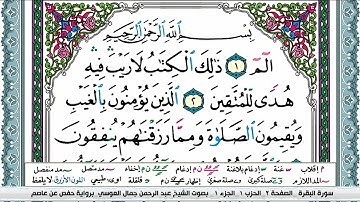 بِسْمِ اللَّهِ الرَّحْمَٰنِ الرَّحِيمِ
الٓمٓ ١ ذَٰلِكَ الْكِتَٰبُ لَا رَيْبَ فِيهِ
هُدًى لِّلْمُتَّقِينَ ٢ الَّذِينَ يُؤْمِنُونَ بِالْغَيْبِ
وَيُقِيمُونَ الصَّلَوٰةَ وَمِمَّا رَزَقْنَٰهُمْ يُنفِقُونَ
سورة البقرة الصفحة ٢ الحزب ١ الجزء ١ بصوت الشيخ عبد الرحمن جمال العوسي برواية حفص عن عاصم